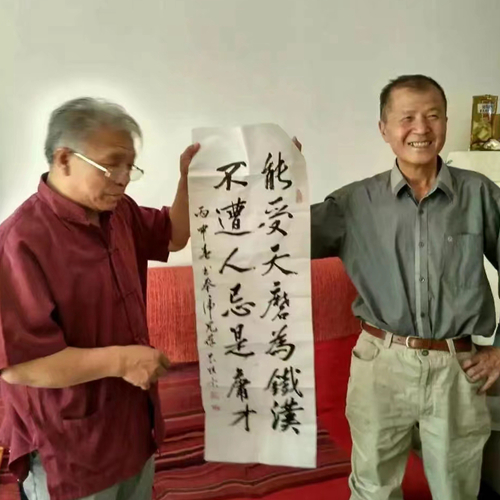 能受天磨為鐵漢
不遭人忌是庸才
丙申